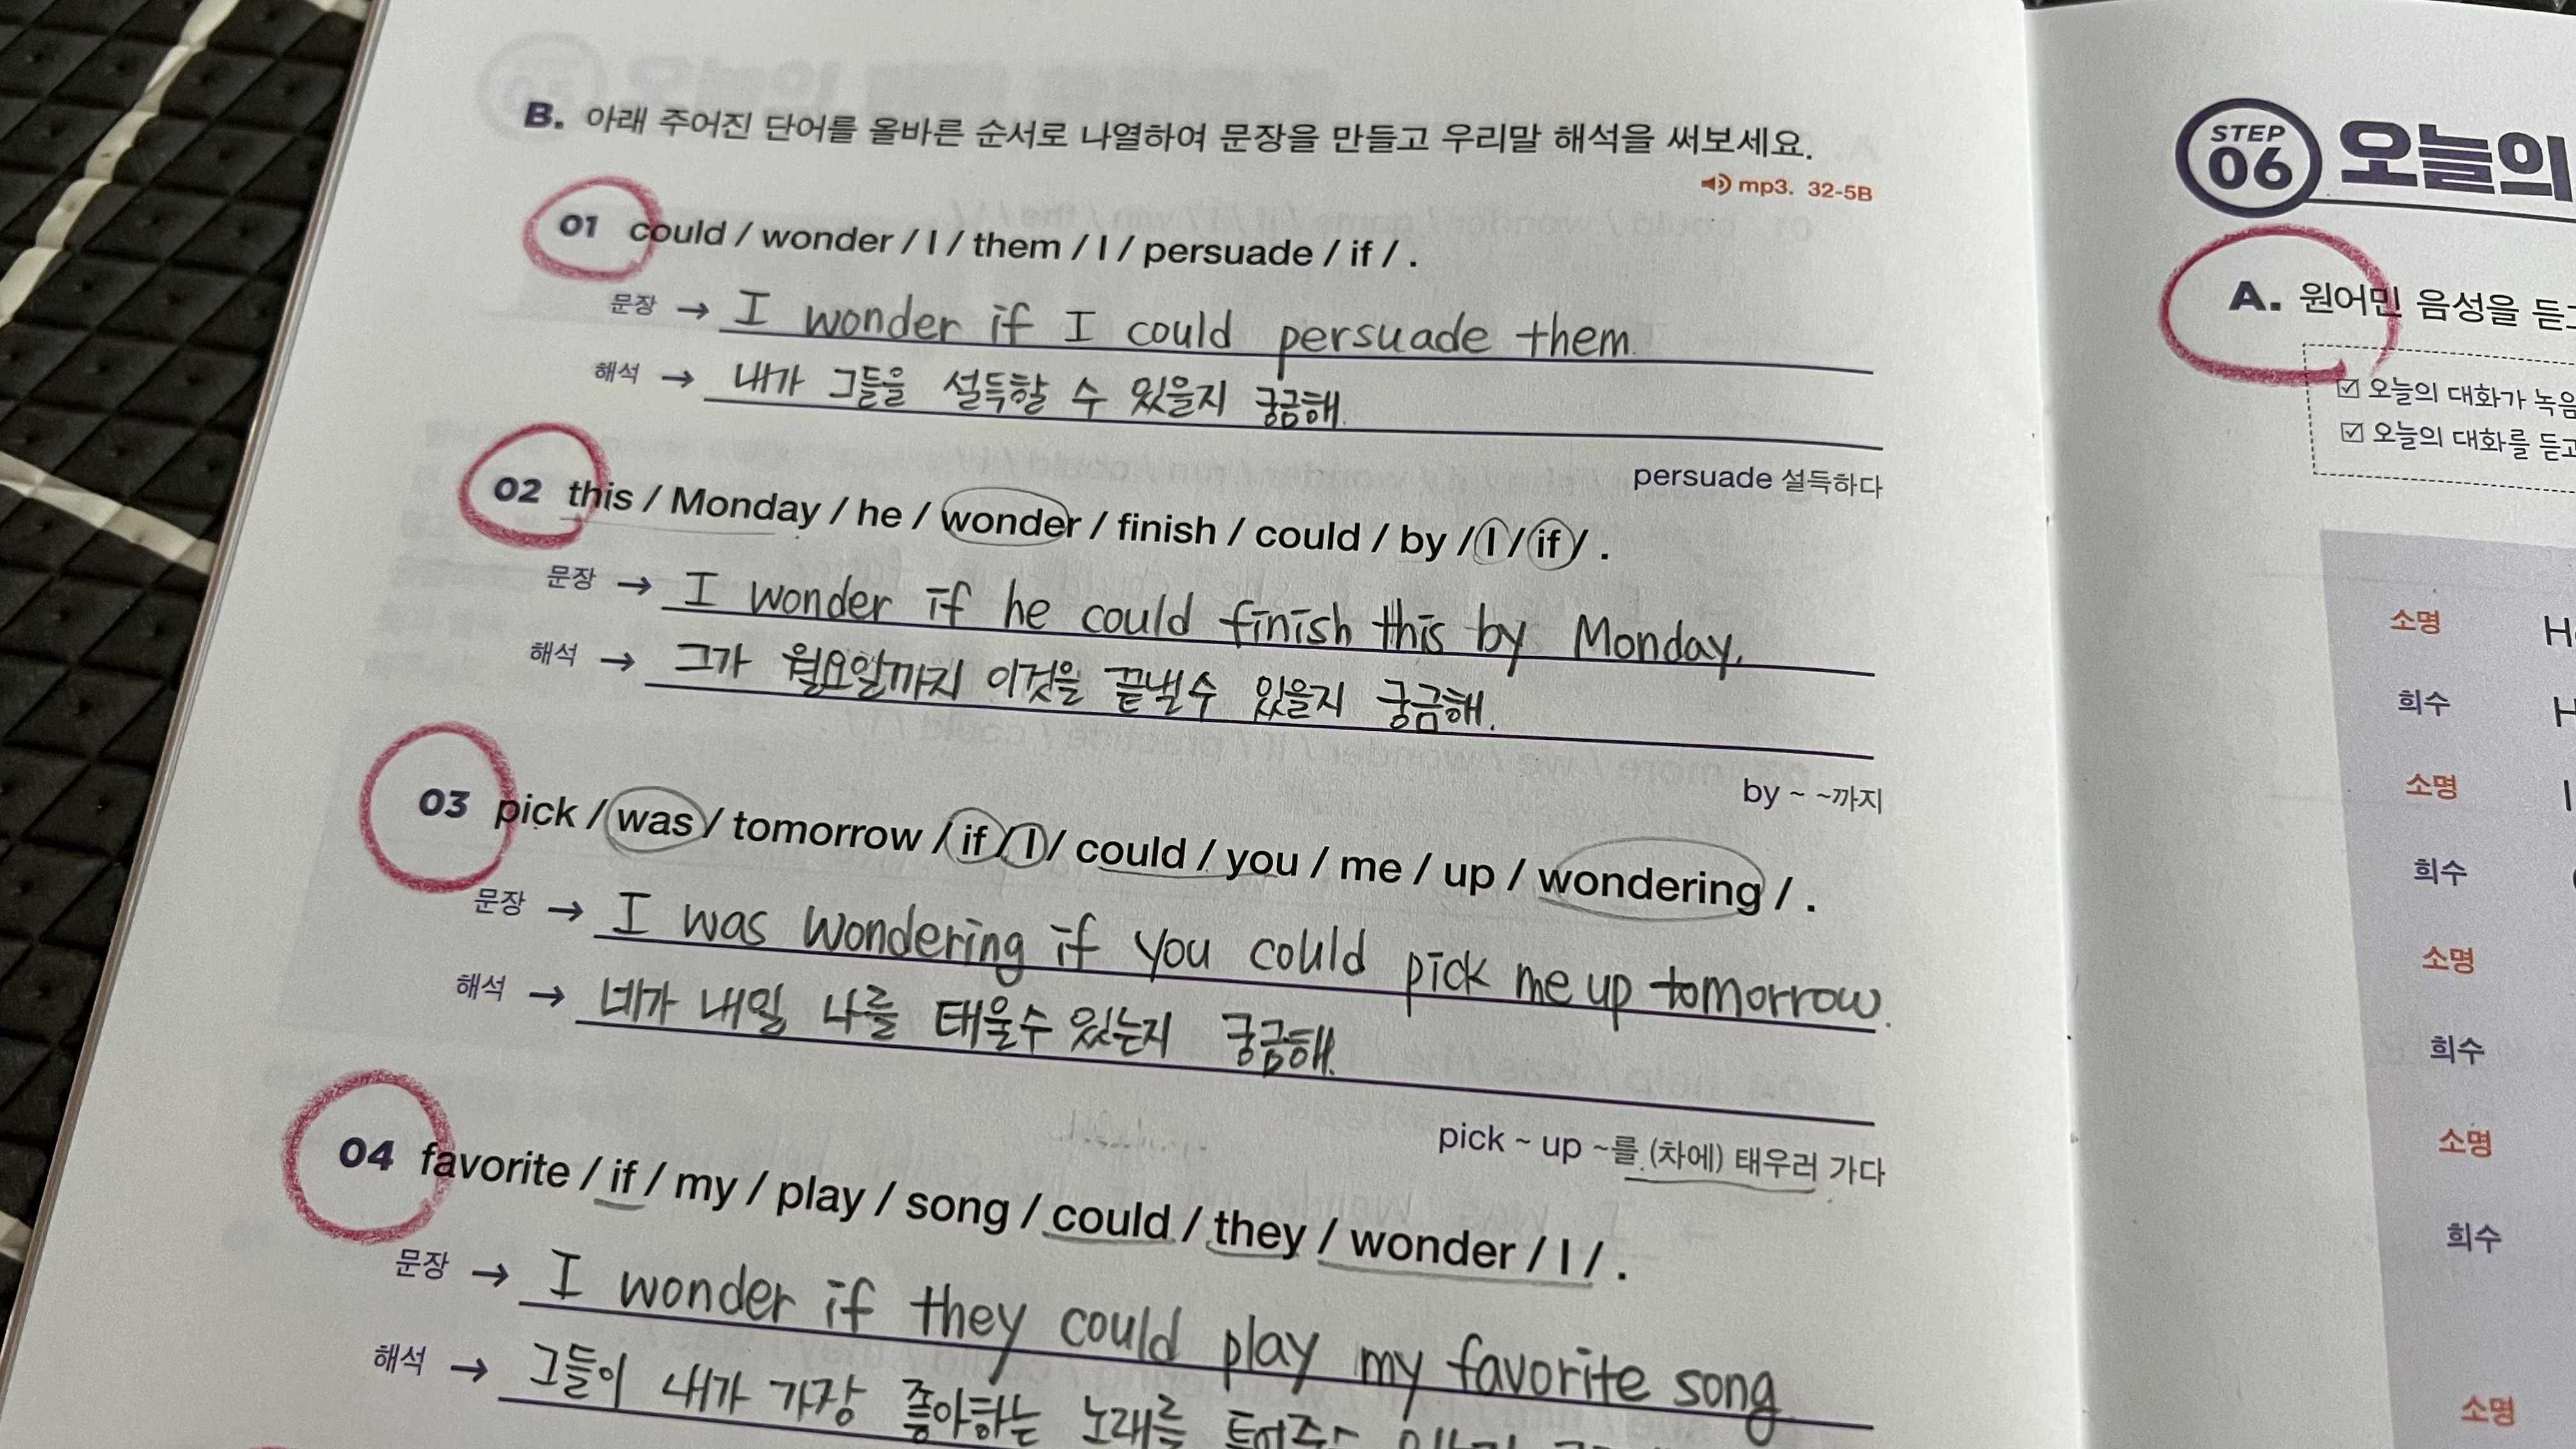 B. 아래 주어진 단어를 올바른 순서로 나열하여 문장을 만들고 우리말 해석을 써보세요.
mp3. 32-5B
01 could / wonder / I / them / I / persuade / if / .
문장 → I wonder if I could persuade them.
해석 → 내가 그들을 설득할 수 있을지 궁금해.
persuade 설득하다
02 this / Monday / he / wonder / finish / could / by / I / if / .
문장 → I wonder if he could finish this by Monday.
해석 → 그가 월요일까지 이것을 끝낼수 있을지 궁금해.
by ~ ~까지
03 pick / was / tomorrow / if / I / could / you / me / up / wondering / .
문장 → I was wondering if you could pick me up tomorrow.
해석 → 네가 내일 나를 태울수 있는지 궁금해.
pick ~ up ~를 (차에) 태우러 가다
04 favorite / if / my / play / song / could / they / wonder / I / .
문장 → I wonder if they could play my favorite song
해석 → 그들이 내가 가장 좋아하는 노래를
STEP
06 오늘의
A. 원어민 음성을 듣고
☑ 오늘의 대화가 녹음
☑ 오늘의 대화를 듣고
소명 H
희수 H
소명 I
희수
소명
희수
소명
희수
소명